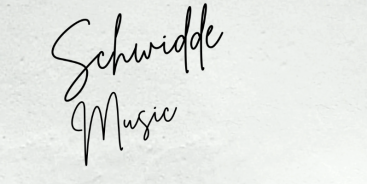 Schwidde
Music